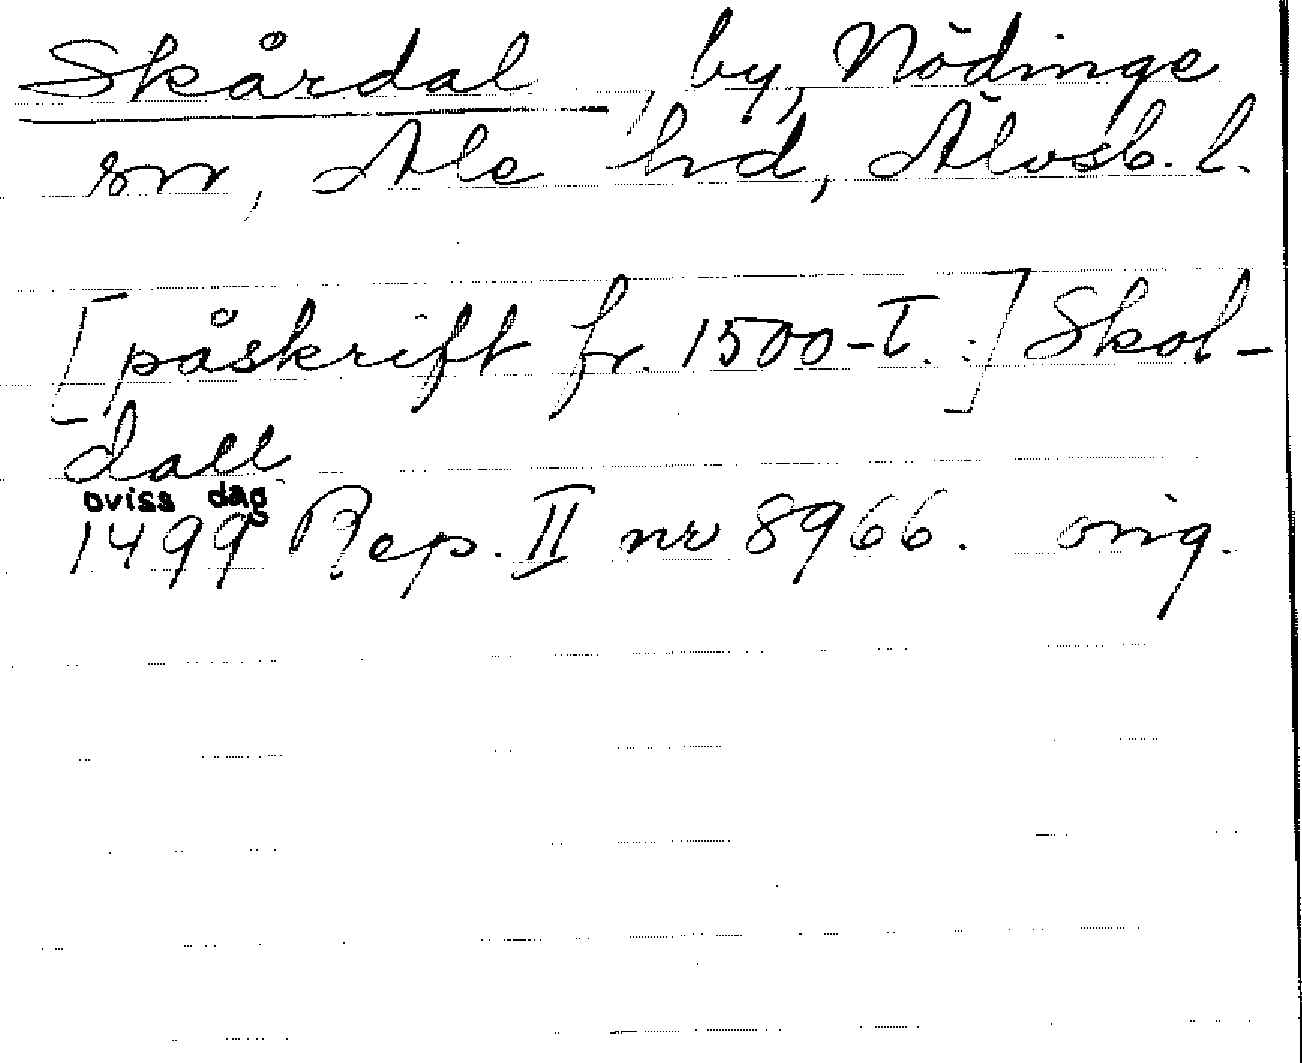 Skårdal, by, Nödinge
sn, Ale hd, Älvsb. l.
[påskrift fr. 1500-T.:] Skol-
dall
oviss dag
1499 Rep. II nr 8966. orig.